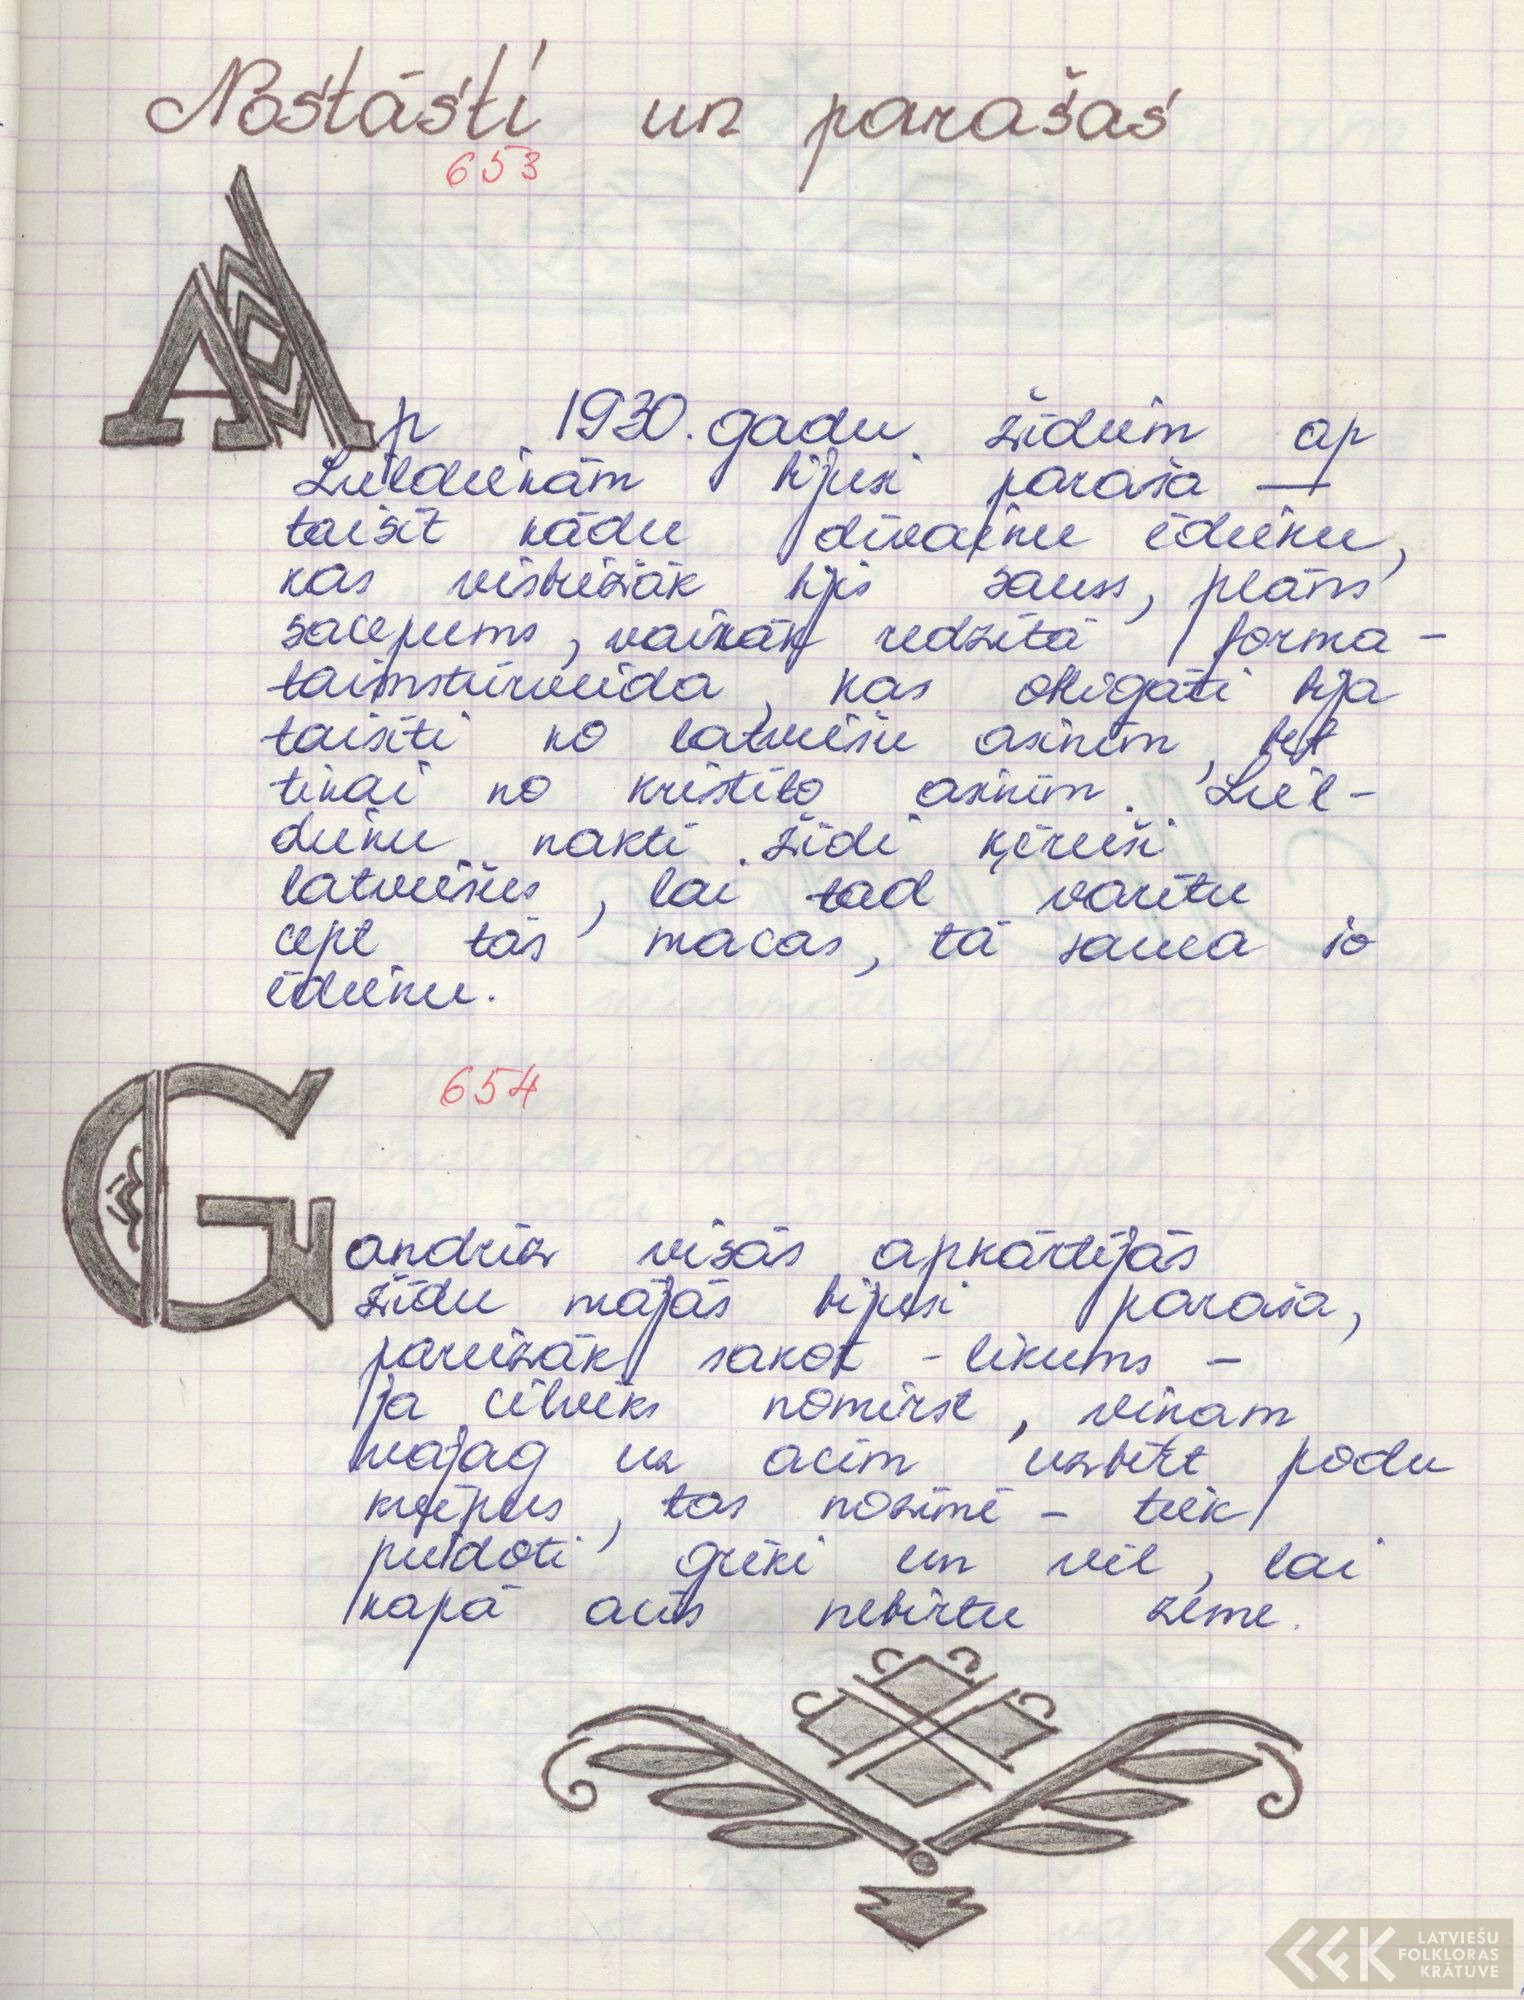 Nostāsti un parašas
653
Ap 1930. gadu žīdiem ap
Lieldienām bijusi paraša —
taisīt kādu dīvainu ēdienu,
kas visbiežāk bijis sauss, plāns
sacepums, vairāk redzētā forma -
taisnstūrveida, kas obligāti bija
taisīti no latviešu asinīm, bet
tikai no kristīto asinīm. Liel-
dienu naktī žīdi ķēruši
latviešus, lai tad varētu
cept tās macas, tā sauca šo
ēdienu.
654
Gandrīz visās apkārtējās
žīdu mājās bijusi paraša,
pareizāk sakot - likums -
ja cilvēks nomirst, viņam
vajag uz acīm uzbērt podu
kripus, tas nozīmē - tiek
piedoti grēki un vēl, lai
kapā acīs nebirtu zeme.
LATVIEŠU
FOLKLORAS
KRĀTUVE